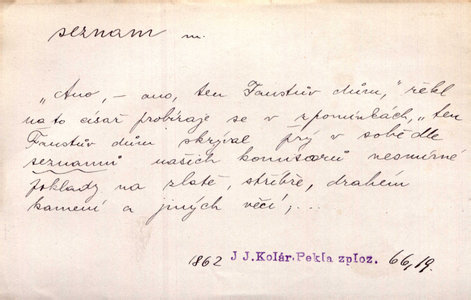 seznam m.
„Ano, – ano, ten Faustův dům,” řekl
na to císař probíraje se v zpomínkách, „ten
Faustův dům skrýval prý v sobě dle
seznamů našich komisarů nesmírné
poklady na zlatě, stříbře, drahém
kamení a jiných věcí; ...
862 J J. Kolár. Pekla zploz. 66, 19.